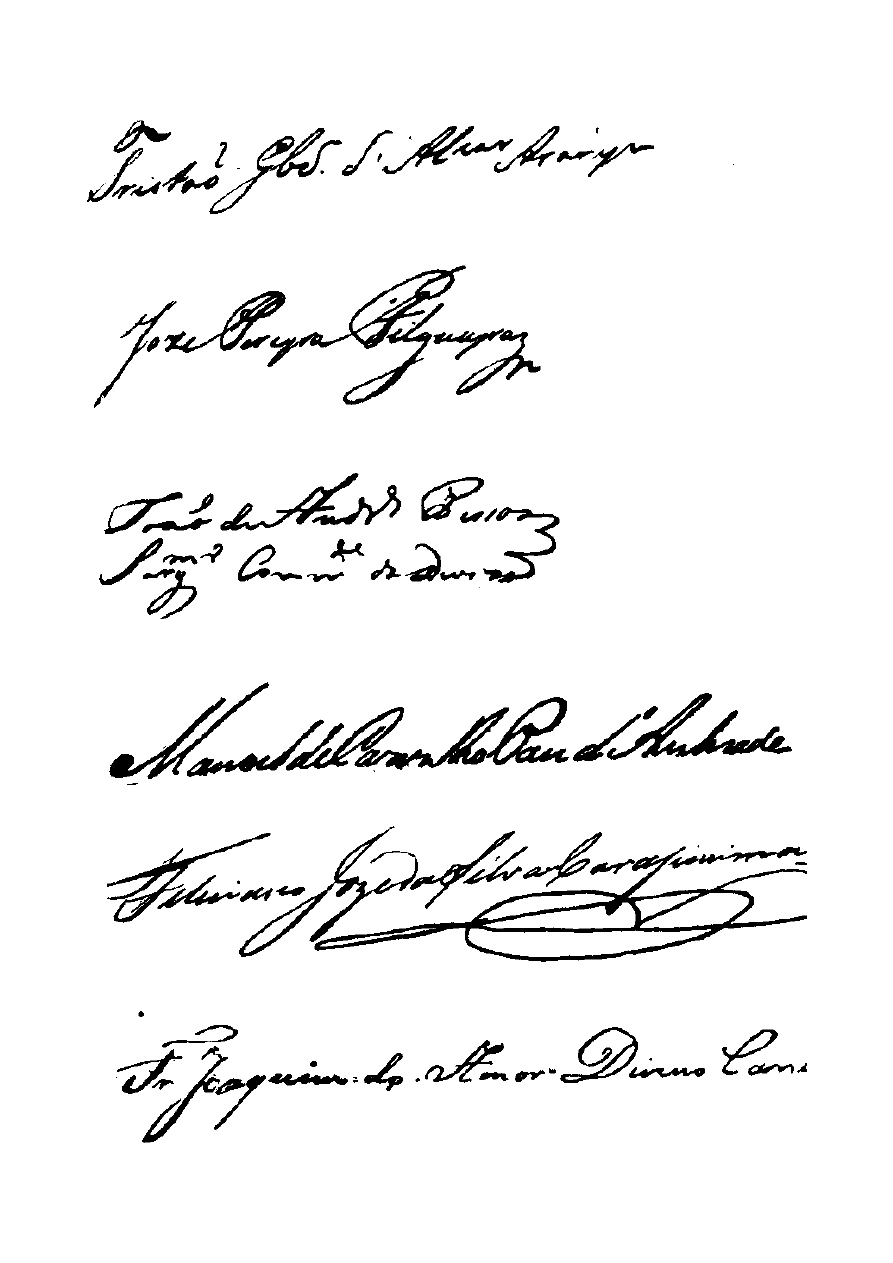 Tristaõ Glz. d'Alcar Araripe
Joze Pereyra Filgueyraz
João de Andr.de Pessoa
Sarg.mor Comm.de
Manoel de Carvalho Paes d'Andrade
Feliciano Jozé da Silva Carapinima
Fr. Joaquim do Amor Divino Cane